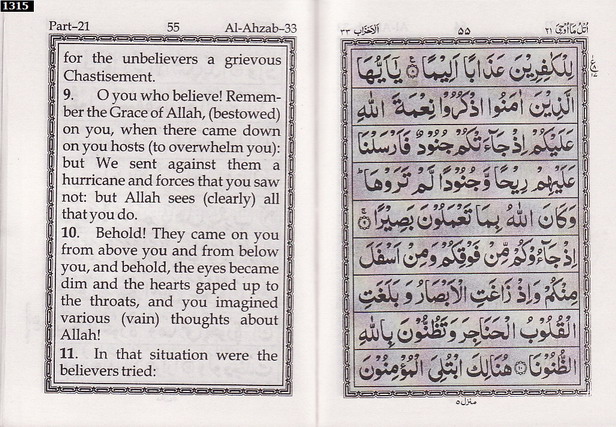 1315
Part-21 55 Al-Ahzab-33
for the unbelievers a grievous
Chastisement.
9. O you who believe! Remem-
ber the Grace of Allah, (bestowed)
on you, when there came down
on you hosts (to overwhelm you):
but We sent against them a
hurricane and forces that you saw
not: but Allah sees (clearly) all
that you do.
10. Behold! They came on you
from above you and from below
you, and behold, the eyes became
dim and the hearts gaped up to
the throats, and you imagined
various (vain) thoughts about
Allah!
11. In that situation were the
believers tried:
اُتْلُ مَآ اُوْحِیَ ٢١ ۵۵ اَلْاَحْزَاب ٣٣
لِلْكٰفِرِيْنَ عَذَابًا اَلِيْمًا ۝۸ يٰۤاَيُّهَا
الَّذِيْنَ اٰمَنُوا اذْكُرُوْا نِعْمَةَ اللّٰهِ
عَلَيْكُمْ اِذْ جَآءَتْكُمْ جُنُوْدٌ فَاَرْسَلْنَا
عَلَيْهِمْ رِيْحًا وَّجُنُوْدًا لَّمْ تَرَوْهَا ؕ
وَكَانَ اللّٰهُ بِمَا تَعْمَلُوْنَ بَصِيْرًا ۝۹
اِذْ جَآءُوْكُمْ مِّنْ فَوْقِكُمْ وَمِنْ اَسْفَلَ
مِنْكُمْ وَاِذْ زَاغَتِ الْاَبْصَارُ وَ بَلَغَتِ
الْقُلُوْبُ الْحَنَاجِرَ وَتَظُنُّوْنَ بِاللّٰهِ
الظُّنُوْنَا ۝۱۰ هُنَالِكَ ابْتُلِيَ الْمُؤْمِنُوْنَ
منزل ۵